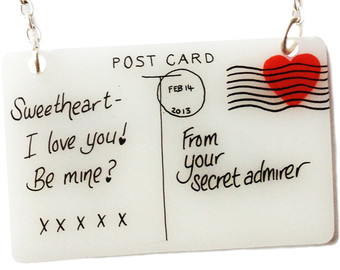 POST CARD
FEB 14
2013
Sweetheart-
I love you!
Be mine?
X X X X X
From
your
secret admirer